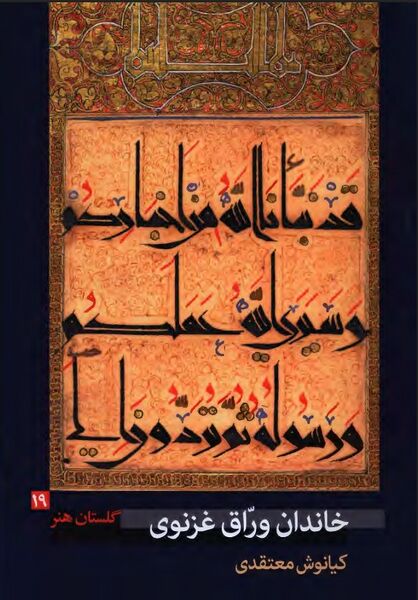 قد نبأنا الله من اخباركم
وسيرى الله عملكم
ورسوله ثم تردون الى
۱۹
گلستان هنر
خاندان ورّاق غزنوی
کیانوش معتقدی